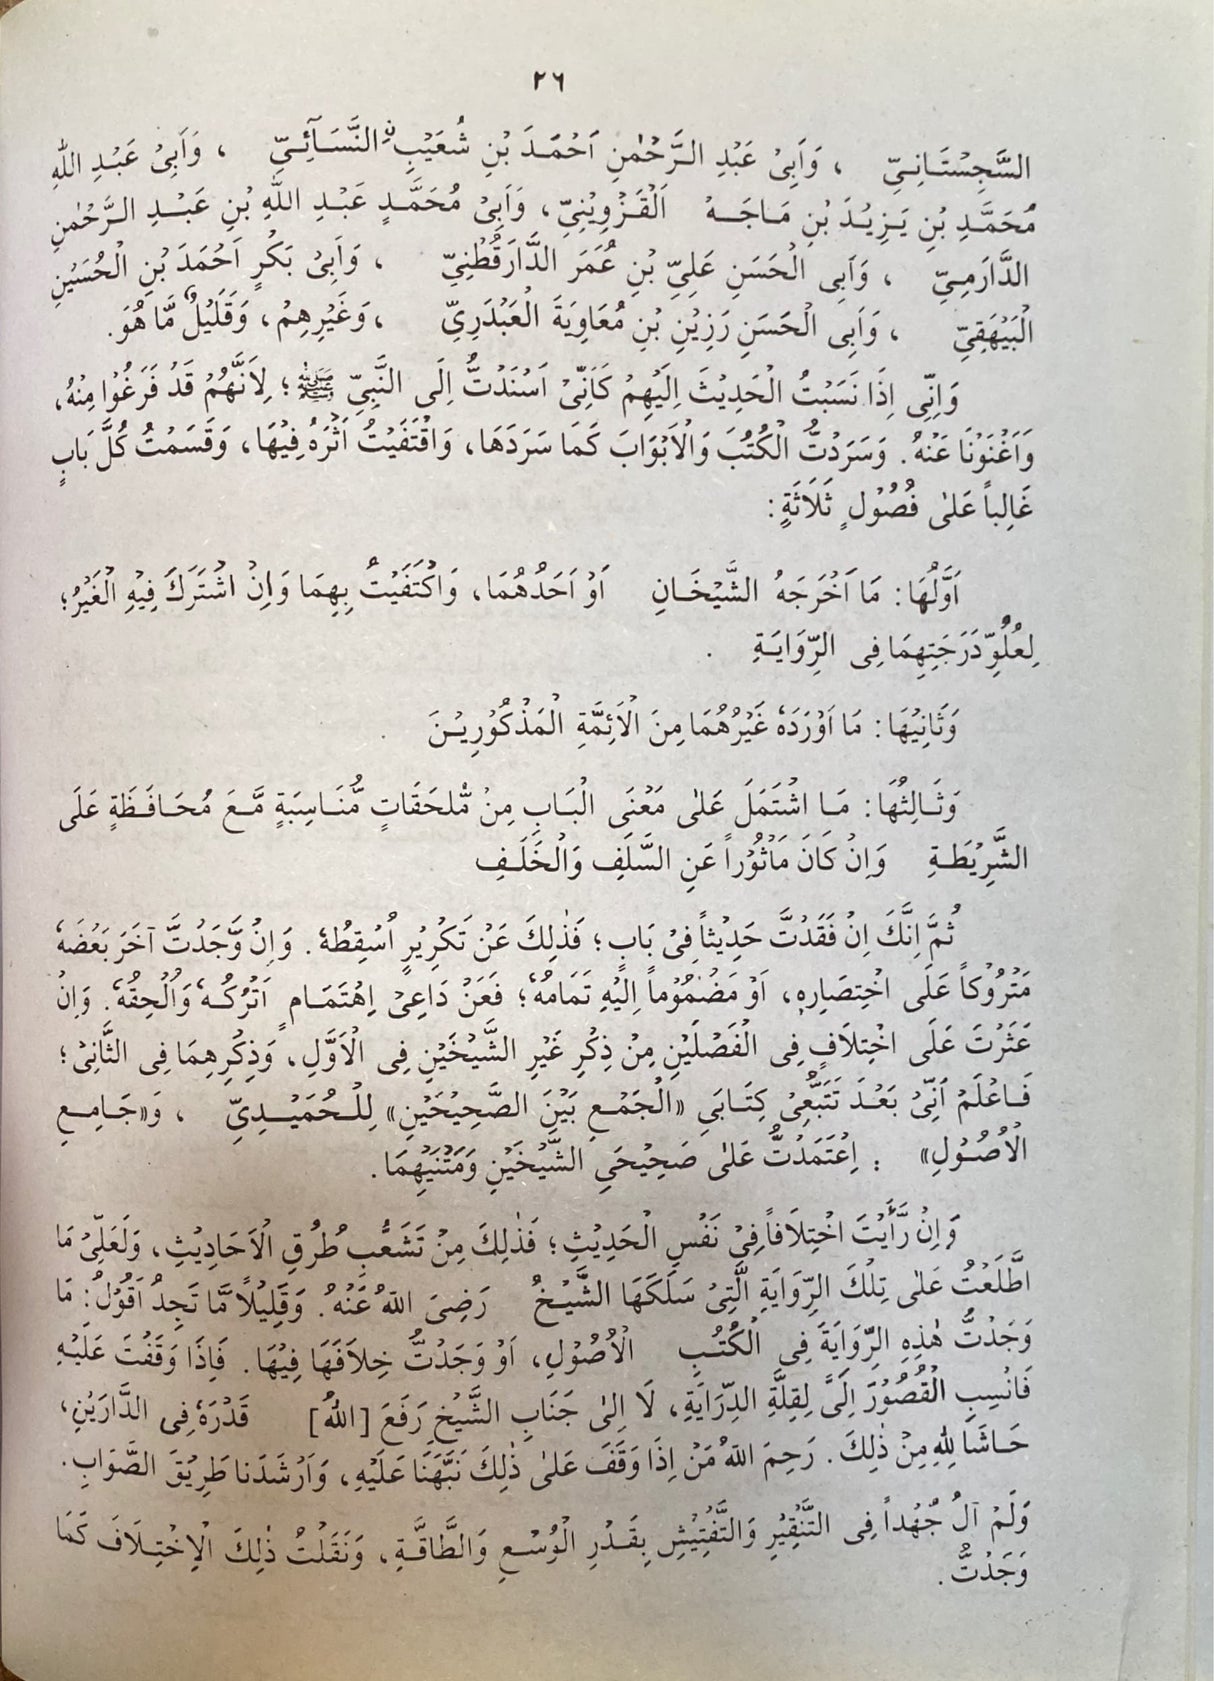 ٢٦
السَّجِسْتَانِيِّ ، وَاَبِىْ عَبْدِ الرَّحْمٰنِ اَحْمَدَ بْنِ شُعَيْبِ ۣالنَّسَآئِيِّ ، وَاَبِىْ عَبْدِ اللّٰهِ
مُحَمَّدِ بْنِ يَزِيْدَ بْنِ مَاجَهْ اَلْقَزْوِيْنِيِّ، وَاَبِىْ مُحَمَّدٍ عَبْدِ اللَّهِ بْنِ عَبْدِ الرَّحْمٰنِ
الدَّارَمِيِّ ، وَاَبِى الْحَسَنِ عَلِيِّ بْنِ عُمَرَ الدَّارَقُطْنِيِّ ، وَاَبِىْ بَكْرٍ اَحْمَدَ بْنِ الْحُسَيْنِ
الْبَيْهَقِيِّ ، وَاَبِى الْحَسَنِ رَزِيْنِ بْنِ مُعَاوِيَةَ الْعَبْدَرِيِّ ، وَغَيْرِهِمْ، وَقَلَيْلٌ مَّا هُوَ.
وَاِنِّى اِذَا نَسَبْتُ الْحَدِيْثَ اِلَيْهِمْ كَاَنِّىْ اَسْنَدْتُّ اِلَى النَّبِيِّ ﷺ؛ لِاَنَّهُمْ قَدْ فَرَغُوْا مِنْهُ،
وَاَغْنَوْنَا عَنْهُ. وَسَرَدْتُّ الْكُتُبَ وَالْاَبْوَابَ كَمَا سَرَدَهَا، وَاقْتَفَيْتُ اَثْرَهُ فِيْهَا، وَقَسَمْتُ كُلَّ بَابٍ
غَالِباً عَلٰى فُصُوْلٍ ثَلَاثَةٍ:
اَوَّلُهَا: مَا اَخْرَجَهُ الشَّيْخَانِ اَوْ اَحَدُهُمَا، وَاكْتَفَيْتُ بِهِمَا وَاِنْ اشْتَرَكَ فِيْهِ الْغَيْرُ؛
لِعُلُوِّ دَرَجَتِهِمَا فِى الرِّوَايَةِ .
وَثَانِيْهَا: مَا اَوْرَدَهٗ غَيْرُهُمَا مِنَ الْاَئِمَّةِ الْمَذْكُوْرِيْنَ
وَثَالِثُهَا: مَا اشْتَمَلَ عَلٰى مَعْنَى الْبَابِ مِنْ مُّلْحَقَاتٍ مُّنَاسِبَةٍ مَّعَ مُحَافَظَةٍ عَلَى
الشَّرِيْطَةِ وَاِنْ كَانَ مَاْثُوْراً عَنِ السَّلَفِ وَالْخَلَفِ
ثُمَّ اِنَّكَ اِنْ فَقَدْتَّ حَدِيْثاً فِىْ بَابٍ؛ فَذٰلِكَ عَنْ تَكْرِيْرٍ اُسْقِطُهٗ. وَاِنْ وَّجَدْتَّ آخَرَ بَعْضَهٗ
مَتْرُوْكاً عَلَى اخْتِصَارِهٖ، اَوْ مَضْمُوْماً اِلَيْهِ تَمَامُهٗ؛ فَعَنْ دَاعِىْ اِهْتَمَامٍ اَتْرُكُهٗ وَاُلْحِقُهٗ. وَاِنْ
عَثَرْتَ عَلَى اخْتِلَافٍ فِى الْفَصْلَيْنِ مِنْ ذِكْرِ غَيْرِ الشَّيْخَيْنِ فِى الْاَوَّلِ، وَذِكْرِهِمَا فِى الثَّانِىْ؛
فَاعْلَمْ اَنِّىْ بَعْدَ تَتَبُّعِىْ كِتَابَيِ «الْجَمْعِ بَيْنَ الصَّحِيْحَيْنِ» لِلْحُمَيْدِيِّ ، وَ«جَامِعِ
الْاُصُوْلِ» : اِعْتَمَدْتُّ عَلٰى صَحِيْحَيِ الشَّيْخَيْنِ وَمَتْنَيْهِمَا.
وَاِنْ رَّأَيْتَ اخْتِلَافاً فِىْ نَفْسِ الْحَدِيْثِ؛ فَذٰلِكَ مِنْ تَشَعُّبِ طُرُقِ الْاَحَادِيْثِ، وَلَعَلِّىْ مَا
اطَّلَعْتُ عَلٰى تِلْكَ الرِّوَايَةِ الَّتِىْ سَلَكَهَا الشَّيْخُ رَضِىَ اللّٰهُ عَنْهُ. وَقَلِيْلاً مَّا تَجِدُ اَقُوْلُ: مَا
وَجَدْتُّ هٰذِهِ الرِّوَايَةَ فِى الْكُتُبِ الْاُصُوْلِ، اَوْ وَجَدْتُّ خِلَافَهَا فِيْهَا. فَاِذَا وَقَفْتَ عَلَيْهِ
فَانْسِبِ الْقُصُوْرَ اِلَىَّ لِقِلَّةِ الدِّرَايَةِ، لَا اِلٰى جَنَابِ الشَّيْخِ رَفَعَ [اللّٰهُ] قَدْرَهٗ فِى الدَّارَيْنِ،
حَاشَا لِلّٰهِ مِنْ ذٰلِكَ. رَحِمَ اللّٰهُ مَنْ اِذَا وَقَفَ عَلٰى ذٰلِكَ نَبَّهَنَا عَلَيْهِ، وَاَرْشَدَنا طَرِيْقَ الصَّوَابِ.
وَلَمْ آلُ جُهْداً فِى التَّنْقِيْرِ وَالتَّفْتِيْشِ بِقَدْرِ الْوُسْعِ وَالطَّاقَّةِ، وَنَقَلْتُ ذٰلِكَ الْاِخْتِلَافَ كَمَا
وَجَدْتُّ.